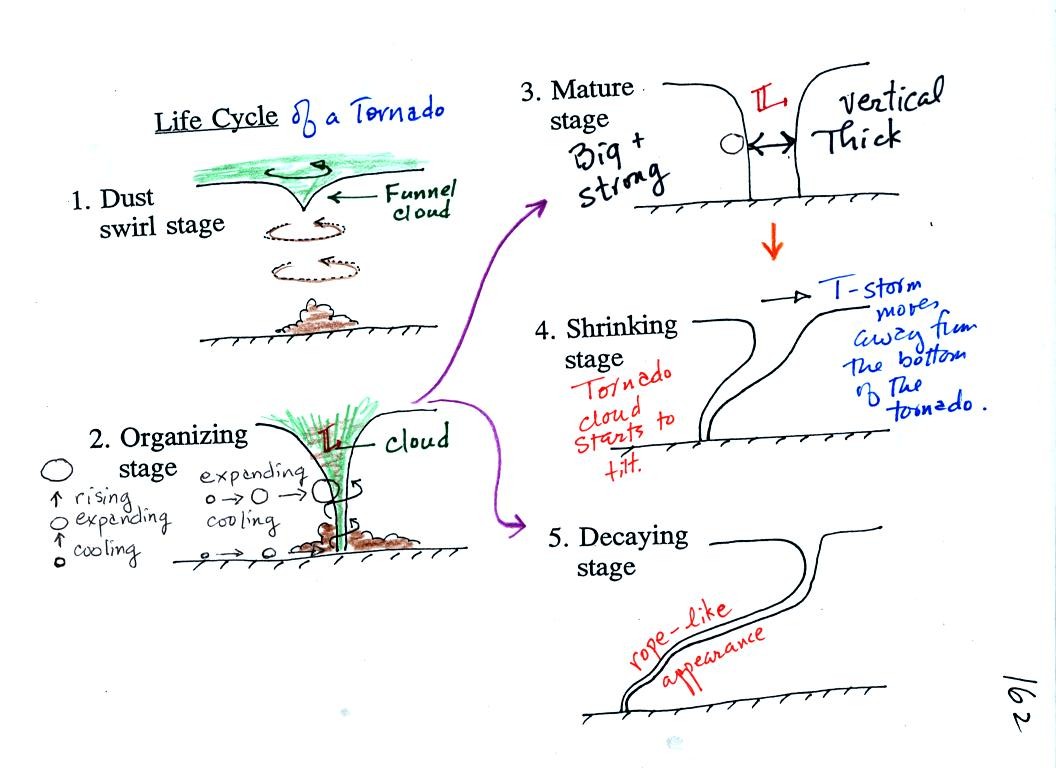 Life Cycle of a Tornado
1. Dust
swirl stage
Funnel
cloud
2. Organizing
stage
L
cloud
rising
expanding
cooling
expanding
cooling
3. Mature
stage
Big +
strong
L
vertical
Thick
4. Shrinking
stage
Tornado
cloud
starts to
tilt.
T-storm
moves
away from
the bottom
of the
tornado.
5. Decaying
stage
rope-like
appearance
162